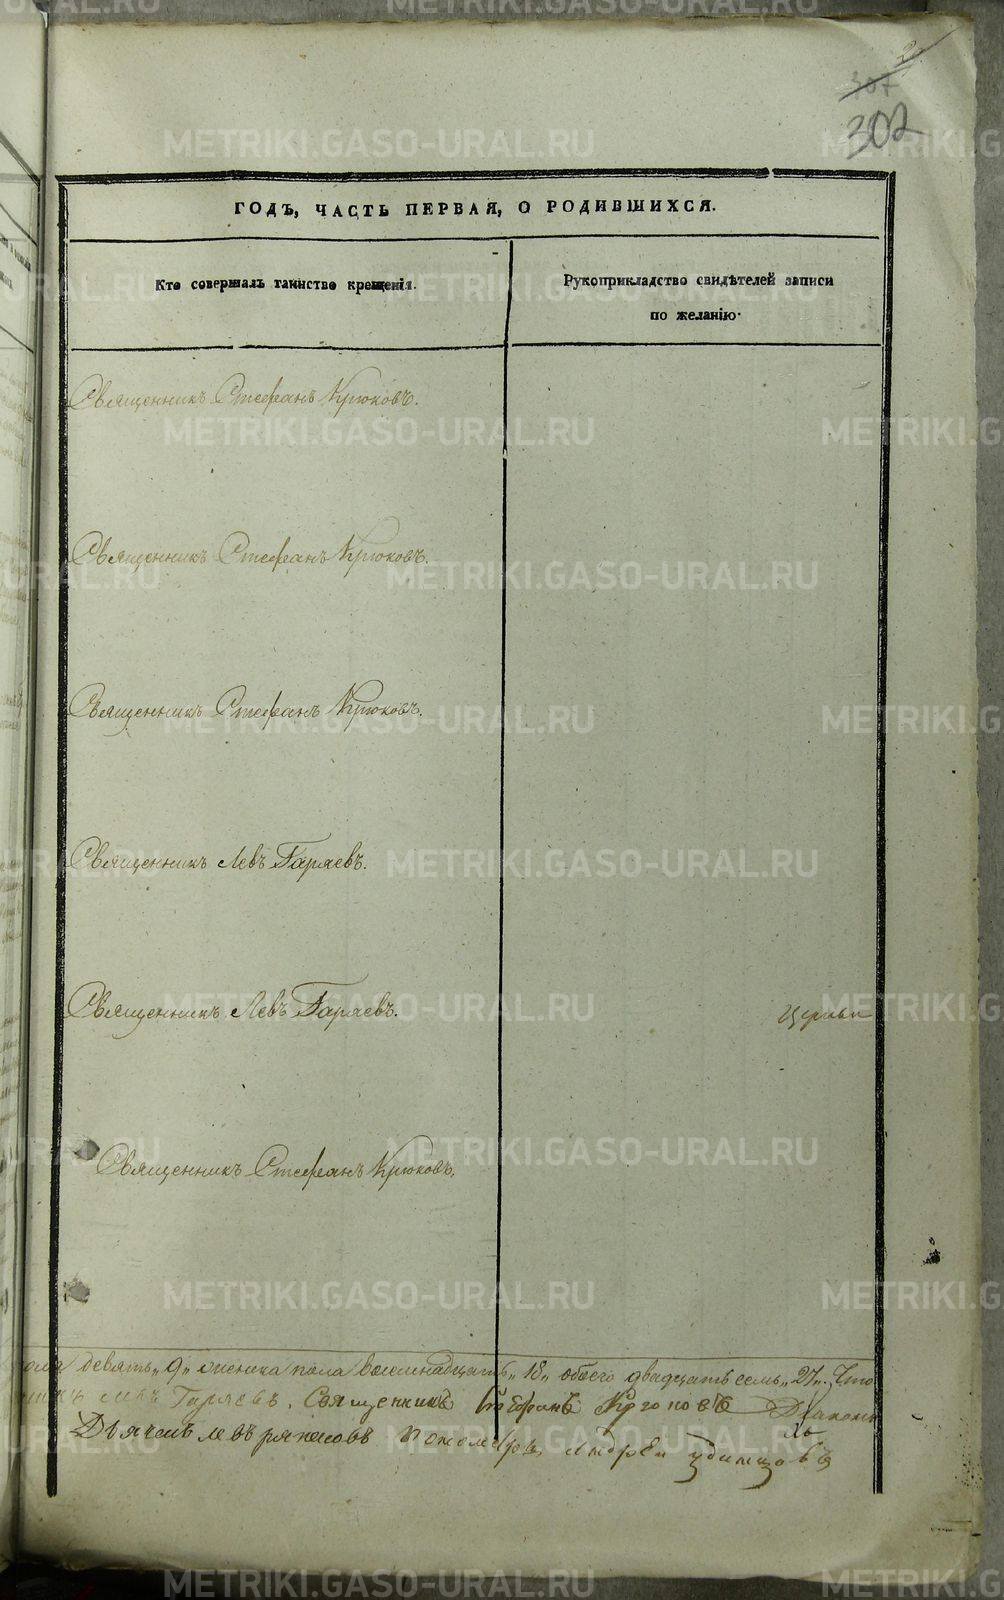 307
302
ГОДЪ, ЧАСТЬ ПЕРВАЯ, О РОДИВШИХСЯ.
Кто совершалъ таинство крещенія.
Рукоприкладство свидѣтелей записи
по желанію.
Священникъ Стефанъ Крюковъ.
Священникъ Стефанъ Крюковъ.
Священникъ Стефанъ Крюковъ.
Священникъ Левъ Гаряевъ.
Священникъ Левъ Гаряевъ.
Церкви
Священникъ Стефанъ Крюковъ.
девять „9„ женска пола восемнадцать „18„ обоего двадцать семь „27„ Что
Левъ Гаряевъ. Священникъ Стефанъ Крюковъ Діаконъ
Дьячекъ Пономарь Андрей Удинцовъ
METRIKI.GASO-URAL.RU